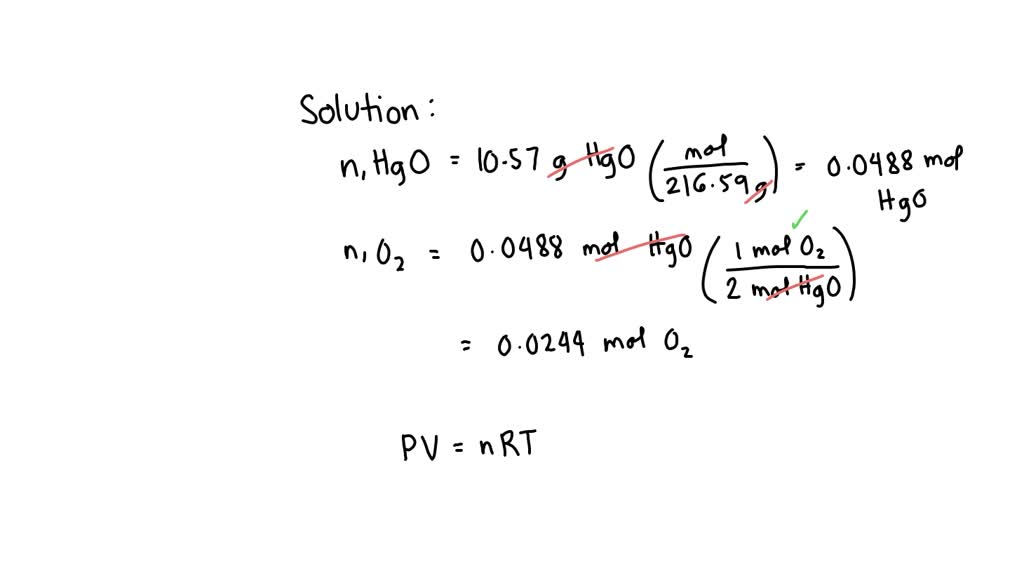 Solution:
n, HgO = 10.57 g HgO (mol / 216.59 g) = 0.0488 mol
HgO
n, O₂ = 0.0488 mol HgO (1 mol O₂ / 2 mol HgO)
= 0.0244 mol O₂
PV = nRT